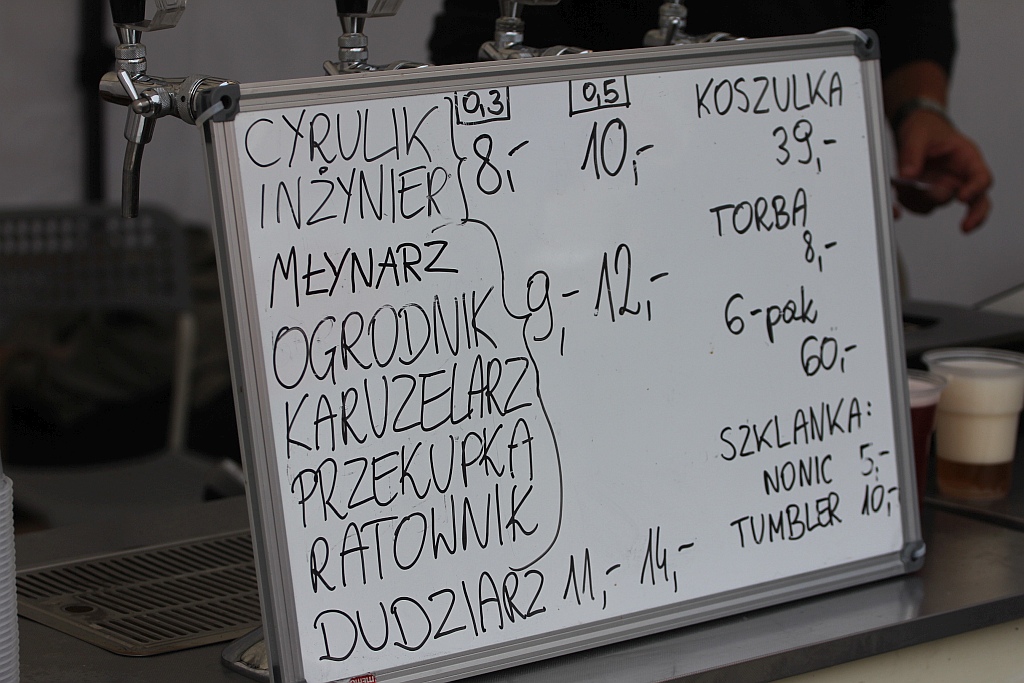 0,3 0,5
CYRULIK
INŻYNIER
8,- 10,-
MŁYNARZ
OGRODNIK
KARUZELARZ
PRZEKUPKA
RATOWNIK
9,- 12,-
DUDZIARZ 11,- 14,-
KOSZULKA
39,-
TORBA
8,-
6-pak
60,-
SZKLANKA:
NONIC 5,-
TUMBLER 10,-